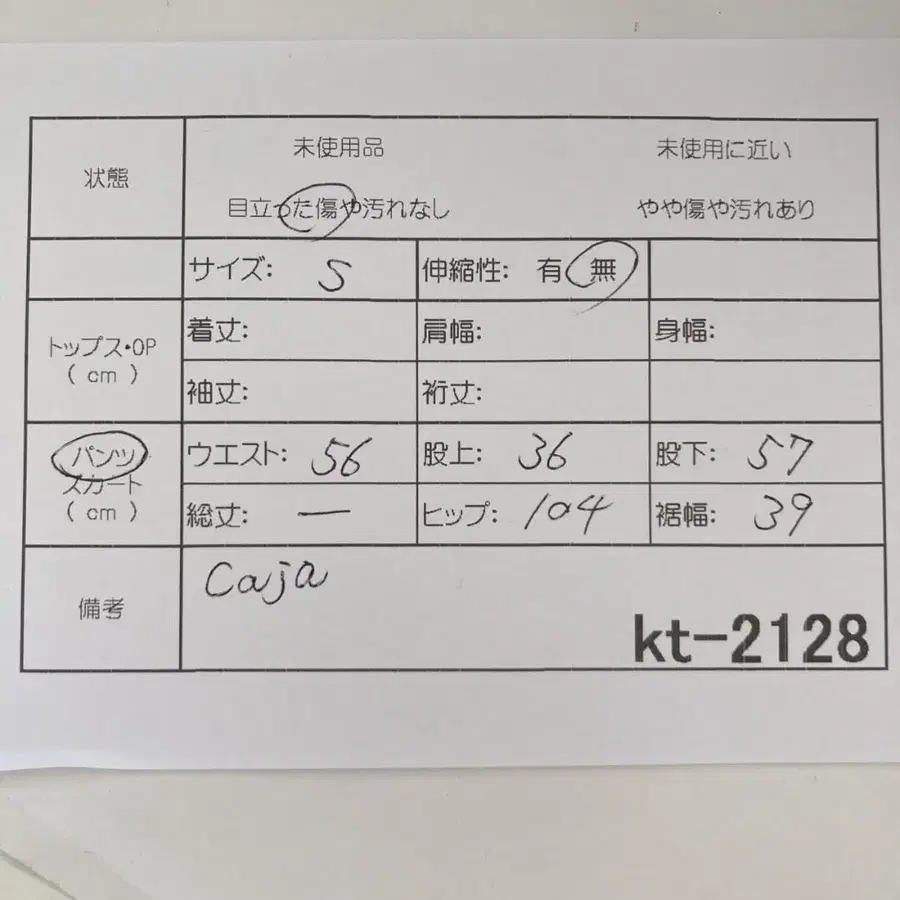 状態
未使用品 未使用に近い
目立った傷や汚れなし やや傷や汚れあり
サイズ: S 伸縮性: 有 無
トップス・OP
( cm )
着丈: 肩幅: 身幅:
袖丈: 裄丈:
パンツ
スカート
( cm )
ウエスト: 56 股上: 36 股下: 57
総丈: — ヒップ: 104 裾幅: 39
備考
Caja
kt-2128